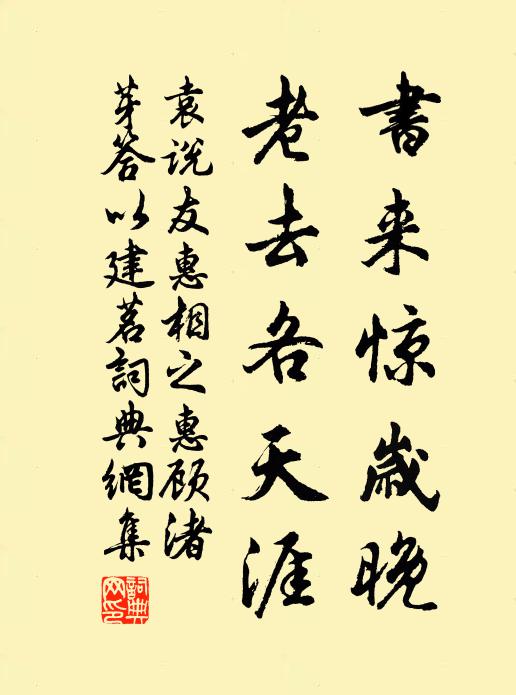 書来惊歲晚
老去各天涯
袁说友惠相之惠顾渚
芽答以建茗詞典網集
詞典網印